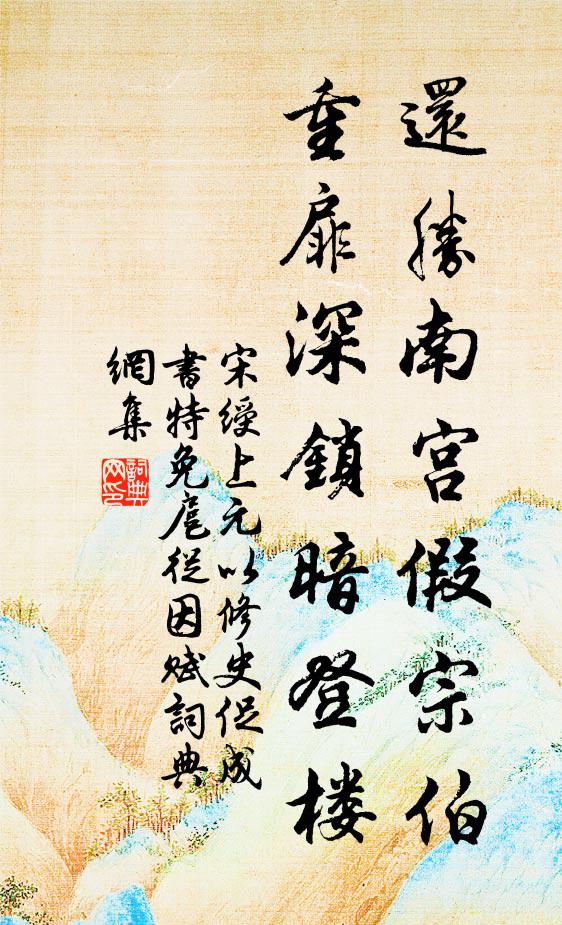 還勝南宮假宗伯
重扉深鎖暗登楼
宋綬上元以修史促成
書特免扈從因赋詞典
網集
詞典
网印